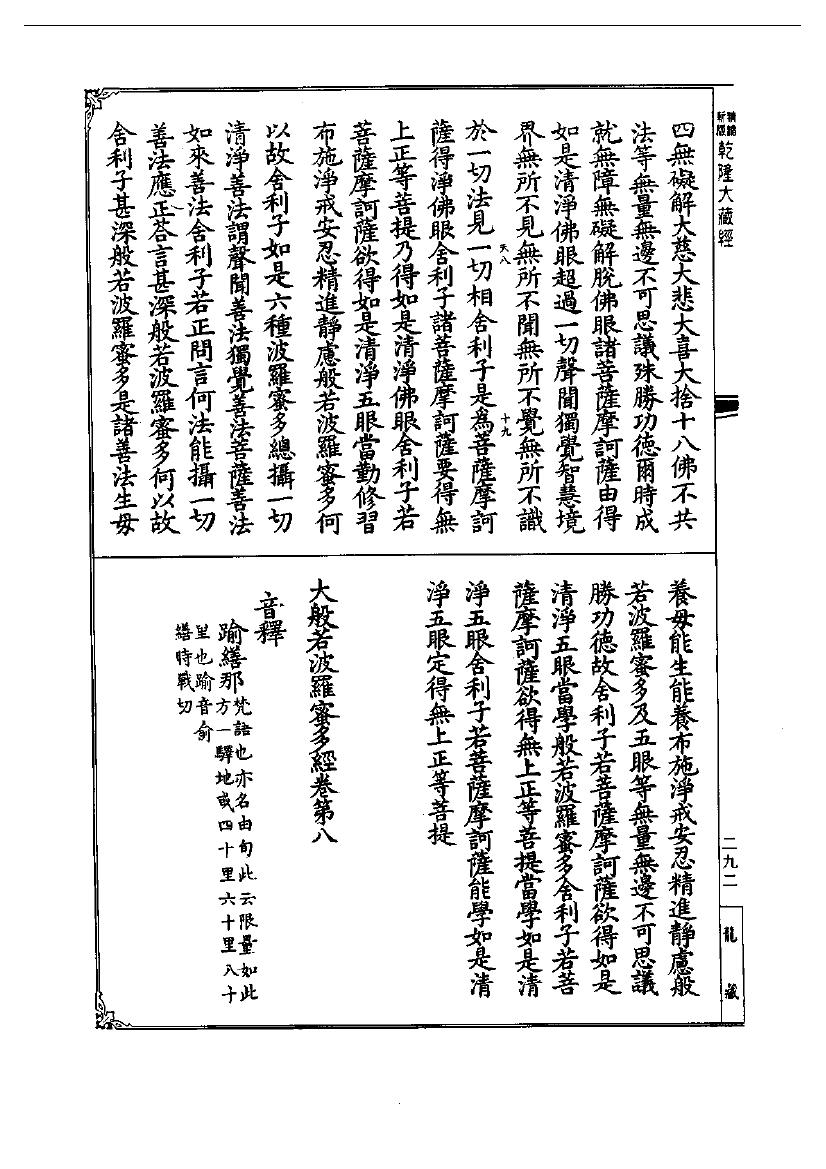 新版
乾隆大藏經
四無礙解大慈大悲大喜大捨十八佛不共
法等無量無邊不可思議殊勝功德爾時成
就無障無礙解脫佛眼諸菩薩摩訶薩由得
如是清淨佛眼超過一切聲聞獨覺智慧境
界無所不見無所不聞無所不覺無所不識
天八
十九
於一切法見一切相舍利子是為菩薩摩訶
薩得淨佛眼舍利子諸菩薩摩訶薩要得無
上正等菩提乃得如是清淨佛眼舍利子若
菩薩摩訶薩欲得如是清淨五眼當勤修習
布施淨戒安忍精進靜慮般若波羅蜜多何
以故舍利子如是六種波羅蜜多總攝一切
清淨善法謂聲聞善法獨覺善法菩薩善法
如來善法舍利子若正問言何法能攝一切
善法應正荅言甚深般若波羅蜜多何以故
舍利子甚深般若波羅蜜多是諸善法生母
養母能生能養布施淨戒安忍精進靜慮般
若波羅蜜多及五眼等無量無邊不可思議
勝功德故舍利子若菩薩摩訶薩欲得如是
清淨五眼當學般若波羅蜜多舍利子若菩
薩摩訶薩欲得無上正等菩提當學如是清
淨五眼舍利子若菩薩摩訶薩能學如是清
淨五眼定得無上正等菩提
大般若波羅蜜多經卷第八
音釋
踰繕那梵語也亦名由旬此云限量如此
方一驛地或四十里六十里八十
里也踰音俞
繕時戰切
二九二
龍藏